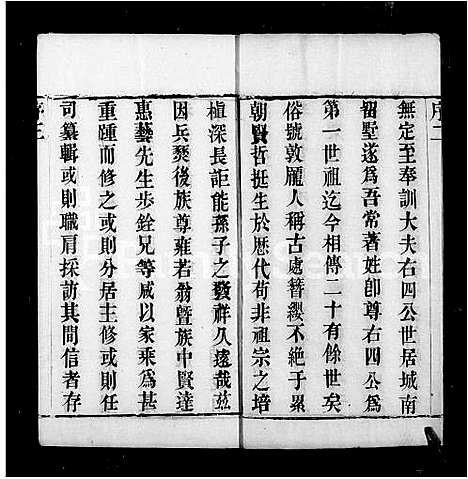 序二
無定至奉訓大夫右四公世居城南
畱墅遂爲吾常著姓卽尊右四公爲
第一世祖迄今相傳二十有餘世矣
俗號敦龐人稱古處簪纓不絶于累
朝賢哲挺生於歴代苟非祖宗之培
植深長詎能孫子之發祥久遠哉茲
因兵燹後族尊雍若翁曁族中賢達
惠藝先生步銓兄等咸以家乘爲甚
重踵而修之或則分居主修或則任
司纂輯或則職肩採訪其間信者存
序三